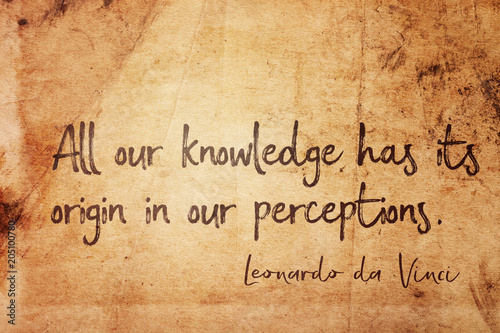 All our knowledge has its
origin in our perceptions.
Leonardo da Vinci